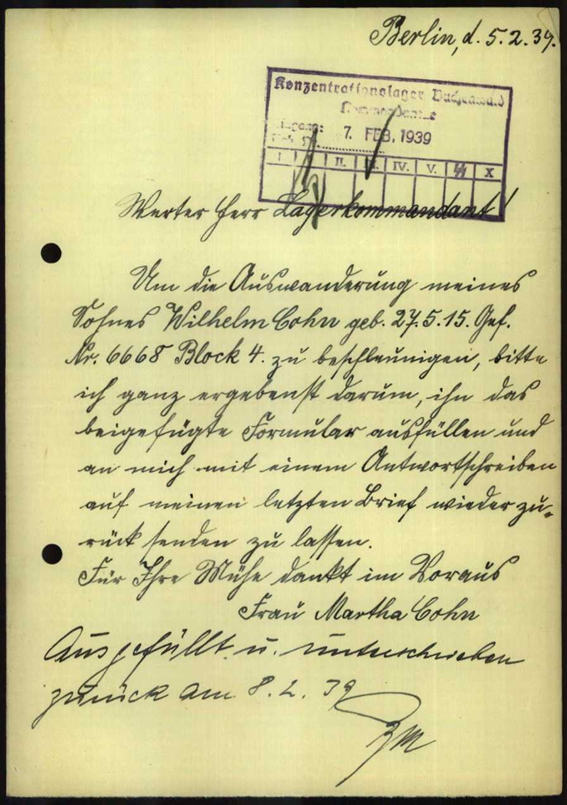 Berlin, d. 5.2.39.
Konzentrationslager Buchenwald
Kommandantur
Eingang: 7. FEB. 1939
I. II. IV. V. ᛋᛋ X
Werter Herr Lagerkommandant!
Um die Auswanderung meines
Sohnes Wilhelm Cohn geb. 27.5.15. Gef.
Nr. 6668 Block 4. zu beschleunigen, bitte
ich ganz ergebenst darum, ihn das
beigefügte Formular ausfüllen und
an mich mit einem Antwortschreiben
auf meinen letzten Brief wieder zu-
rück senden zu lassen.
Für Ihre Mühe dankt im Voraus
Frau Martha Cohn
Ausgefüllt u. unterschrieben
zurück am 8.2.39